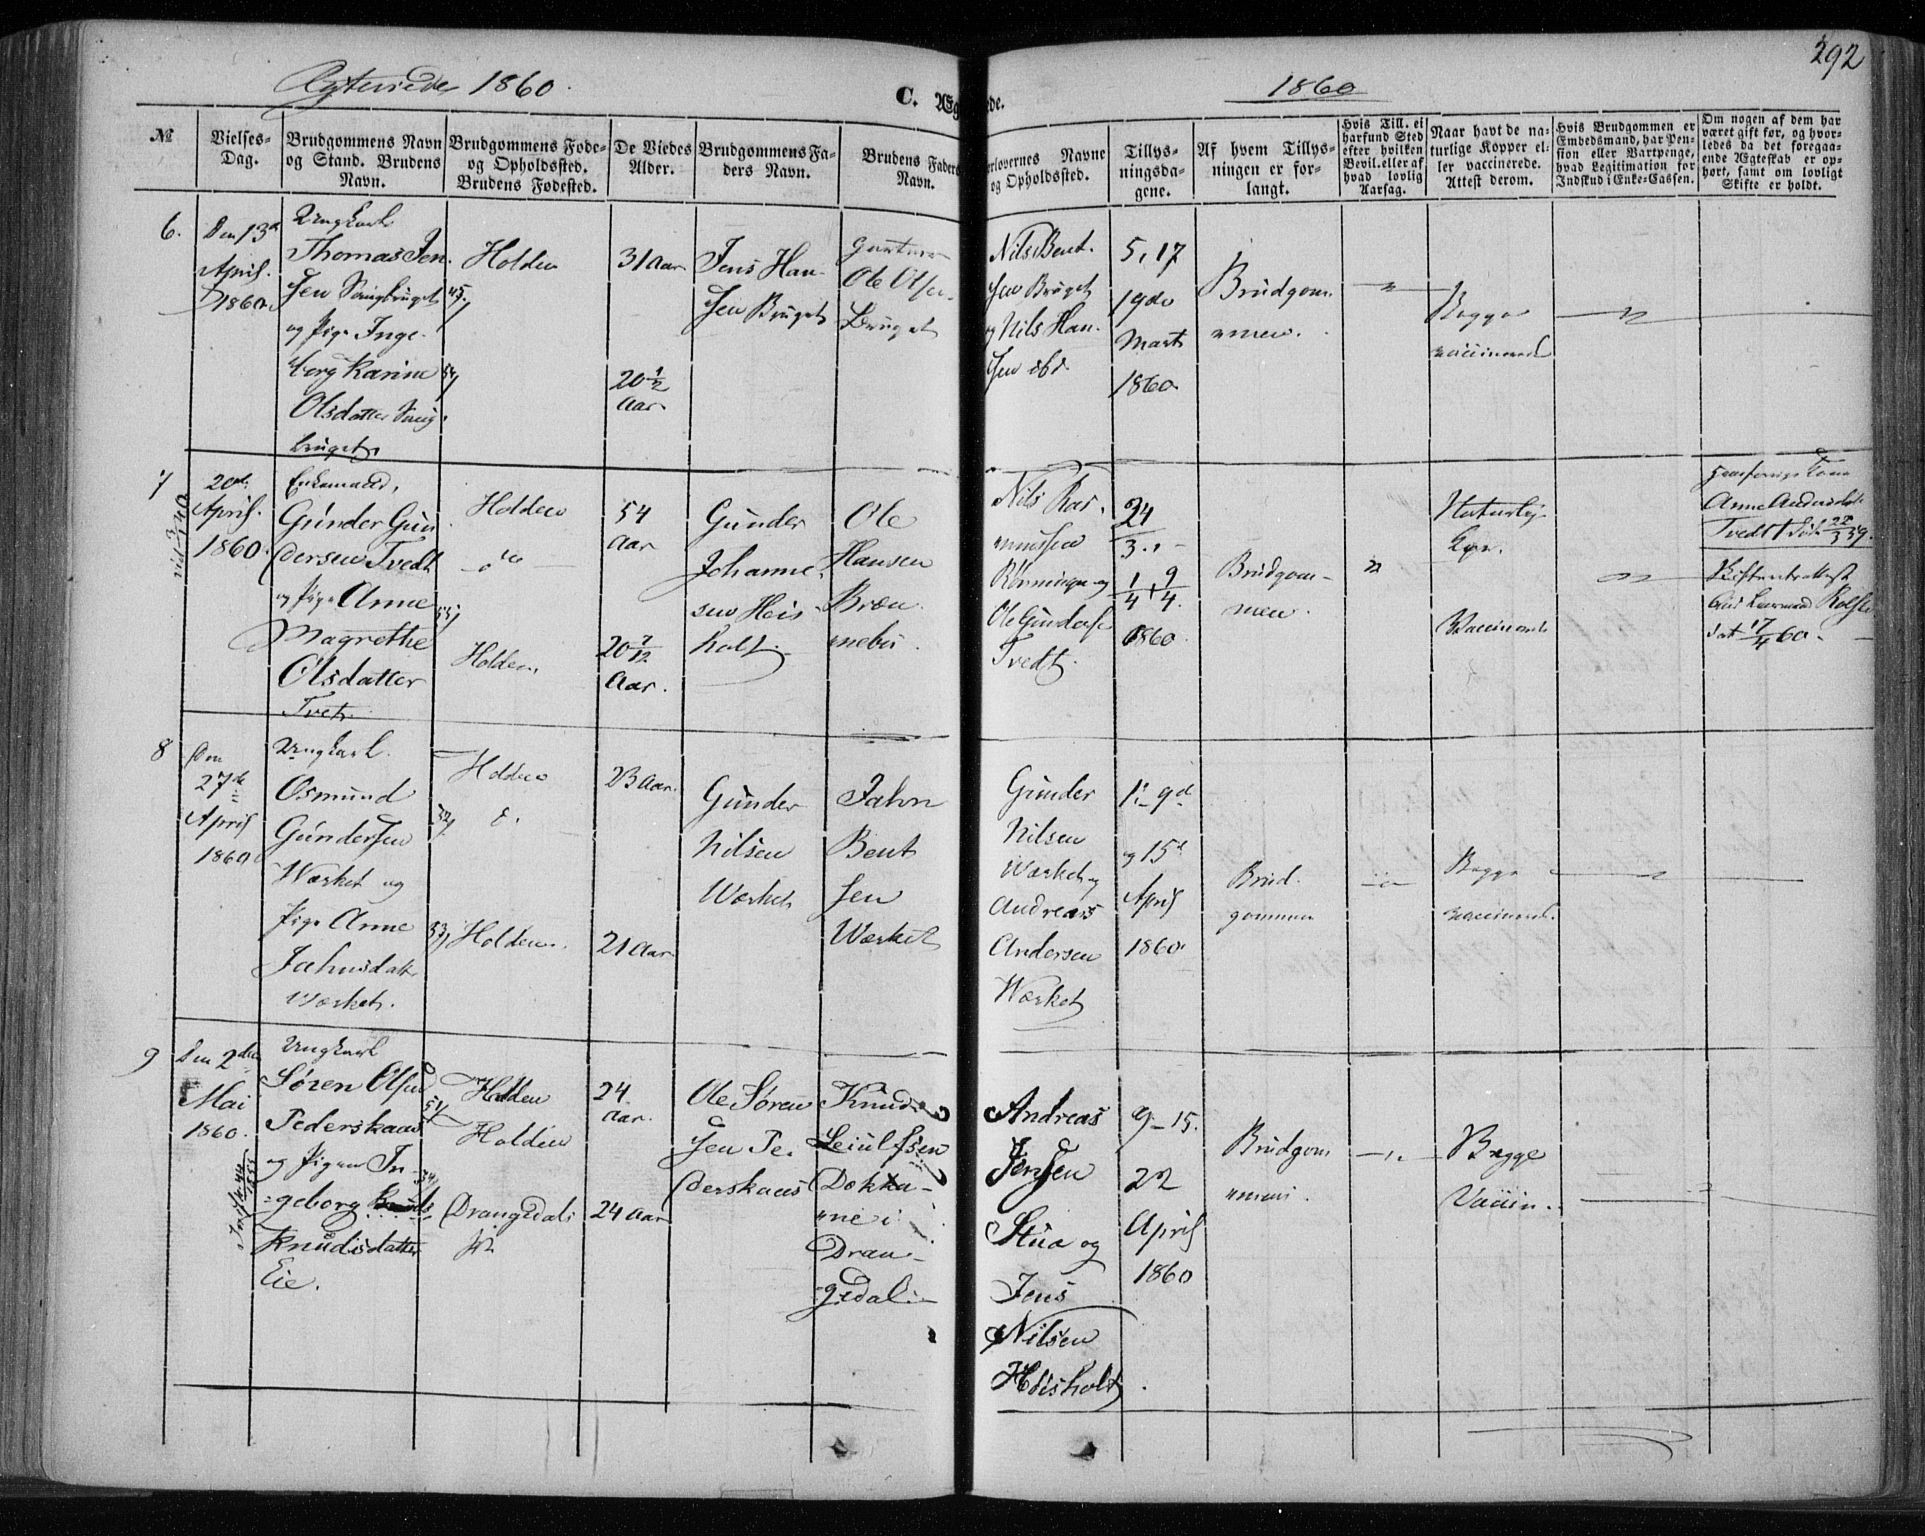 292
Ægteviede 1860.
C. Æg
de.
1860
№
Vielses-
Dag.
Brudgommens Navn
og Stand. Brudens
Navn.
Brudgommens Føde-
og Opholdssted.
Brudens Fødested.
De Viedes
Alder.
Brudgommens Fa-
ders Navn.
Brudens Faders
Navn.
orlovernes Navne
og Opholdssted.
Tillys-
ningsda-
gene.
Af hvem Tillys-
ningen er for-
langt.
Hvis Till. ei
har fund Sted
efter hvilken
Bevil. eller af
hvad lovlig
Aarsag.
Naar havt de na-
turlige Kopper el-
ler vaccinerede.
Attest derom.
Hvis Brudgommen er
Embedsmand, har Pen-
sion eller Vartpenge,
hvad Legitimation for
Indskud i Enke-Cassen.
Om nogen af dem har
været gift før, og hvor-
ledes da det foregaa-
ende Ægteskab er op-
hørt, samt om lovligt
Skifte er holdt.
6.
Den 13de
April
1860
Ungkarl
Thomas Jen
sen
og Pige Inge
borg Karine
Olsdatter
bruget
45
Holden
31 Aar
20 1/2
Aar
Jens Han
sen Bruget
Ole Olsen
Bruget
Nils Bent
sen Bruget
og Nils Han
sen ibd
5, 17
19de
Marts
1860
Brudgom
men.
Begge
vaccinered
7
20de
April
1860
Enkemand,
Gunder Gun
dersen Tvedt
og Pige Anne
Magrethe
Olsdatter
Tvet.
Holden
do
Holden
54
Aar
20 7/12
Aar.
Gunder
Johanne
sen Heis
holt
Ole
Hansen
Bræn
nebu
Nils Ras
mussen
Rønningen og
Ole Gunders
Tvedt
24
3
1/4, 9/4
1860
Brudgom-
men.
Naturlig
Kop.
Vaccinered
Anne
Tvedt 22/3 59.
dat 17/4 60
8
Den
27de
April
1860
Ungkarl
Osmund
Gundersen
Værket og
Pige Anne
Jahnsdatt
Værket.
53
Holden
Holden
23 Aar.
21 Aar
Gunder
Nilsen
Værket
Jahn
Bent
sen
Værket
Gunder
Nilsen
Værket og
Andreas
Andersen
Værket
1. 9d
og 15d
April
1860
Brud
gommen
Begge
vaccinered.
9
Den 2den
Mai
1860.
Ungkarl
Søren Olsen
Pederskaas
og Pigen In
geborg
Knudsdatter
Eie.
54
Holden
Holden
Drangedal
24
Aar.
24 Aar
Ole Søren
sen Pe
derskaas
Knud
Leiulfsen
Dokka
ne i
Dran
gedal
Andreas
Jensen
Stua og
Jens
Nilsen
Heisholt
9-15.
22
April
1860
Brudgom
men.
Begge
Vaccin.